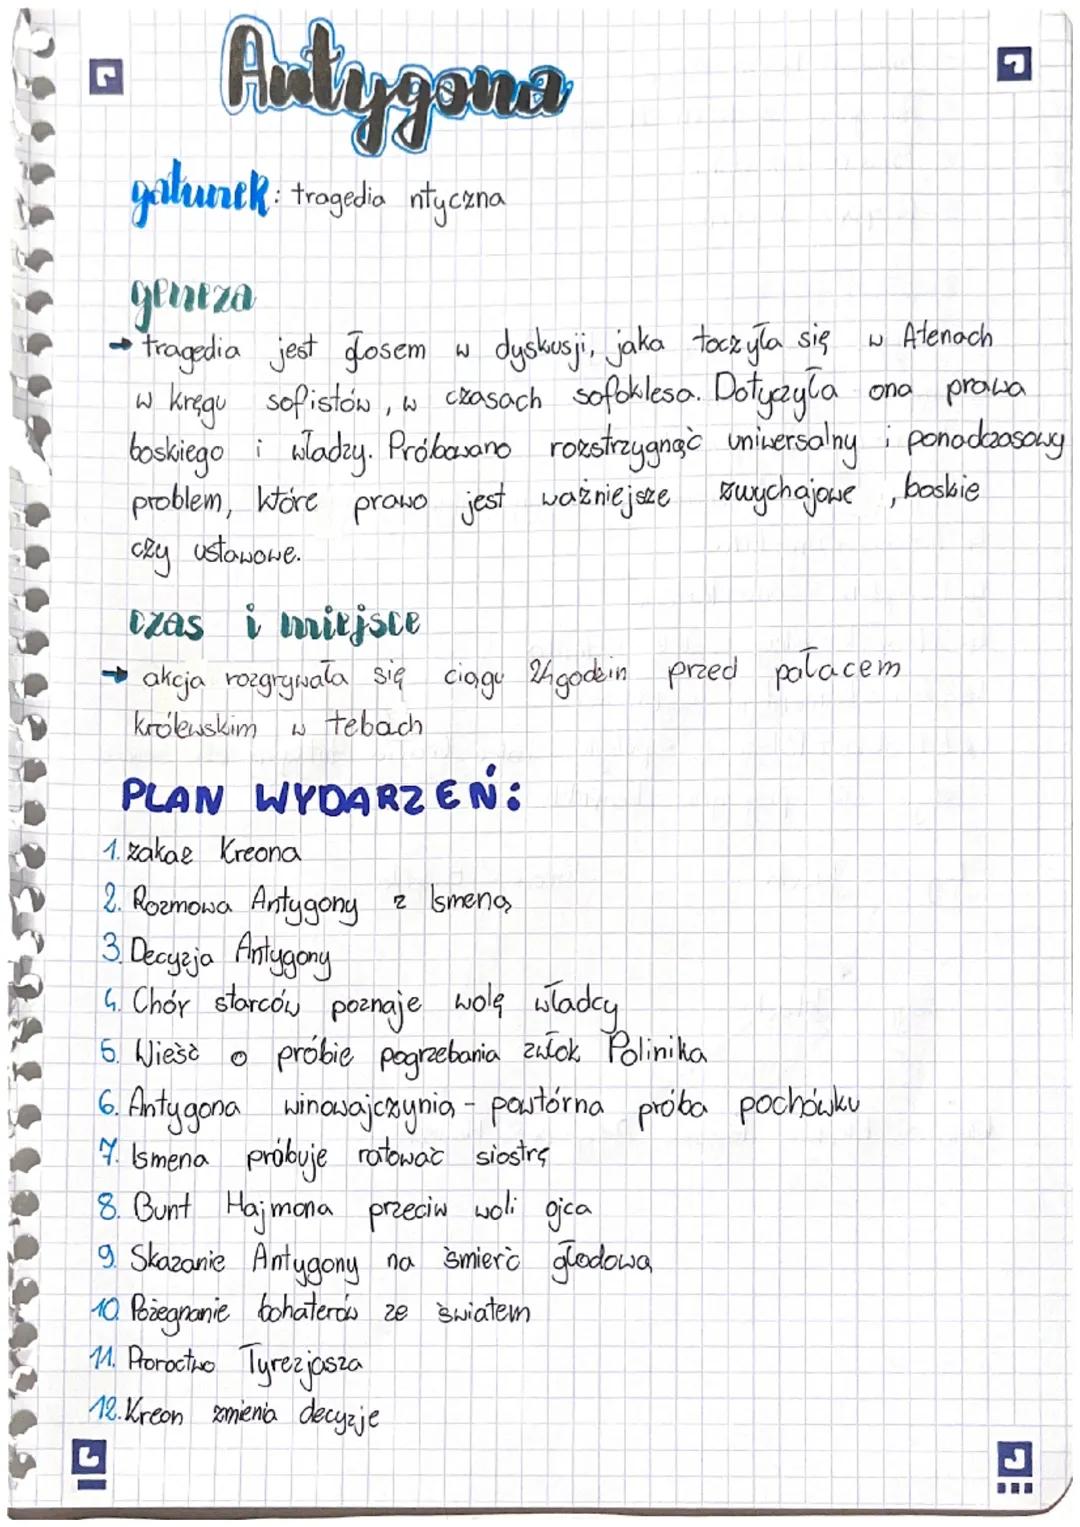 Antygona
gatunek: tragedia ntyczna
geneza
→ tragedia jest głosem w dyskusji, jaka toczyła się w Atenach
w kręgu sofistów, w czasach sofoklesa. Dotyczyła ona prawa
boskiego i władzy. Próbowano rozstrzygnąć uniwersalny i ponadczasowy
problem, które prawo jest ważniejsze zwychajowe, boskie
czy ustawowe.
czas i miejsce
→ akcja rozgrywała się ciągu 24 godzin przed pałacem
królewskim w tebach
PLAN WYDARZEŃ:
1. zakaz Kreona
2. Rozmowa Antygony z Ismeną
3. Decyzja Antygony
4. Chór starców poznaje wolę władcy
5. Wieść o próbie pogrzebania zwłok Polinika
6. Antygona winowajczynią - powtórna próba pochówku
7. Ismena próbuje ratować siostrę
8. Bunt Hajmona przeciw woli ojca
9. Skazanie Antygony na śmierć głodową
10. Pożegnanie bohaterów ze światem
11. Proroctwo Tyrezjasza
12. Kreon zmienia decyzje